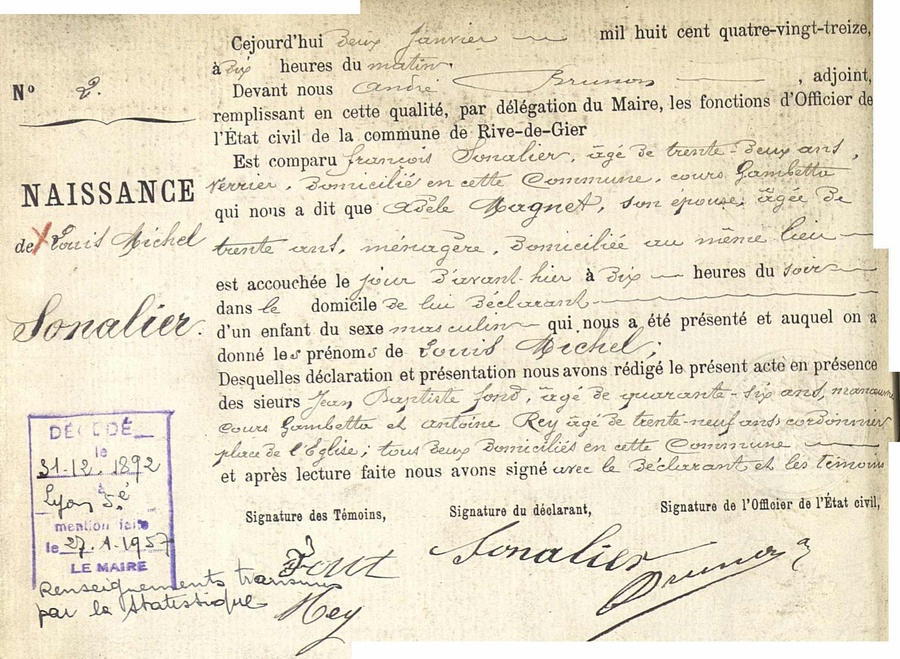 Cejourd'hui deux Janvier mil huit cent quatre-vingt-treize,
à dix heures du matin.
Devant nous André Brunon, adjoint,
remplissant en cette qualité, par délégation du Maire, les fonctions d'Officier de
l'État civil de la commune de Rive-de-Gier
Est comparu françois Sonalier, âgé de trente-deux ans,
verrier, domicilié en cette Commune, cours Gambetta
qui nous a dit que Adèle Magnet, son épouse, âgée de
trente ans, ménagère, domiciliée au même lieu
est accouchée le jour d'avant-hier à dix heures du soir
dans le domicile de lui déclarant
d'un enfant du sexe masculin qui nous a été présenté et auquel on a
donné les prénoms de Louis Michel;
Desquelles déclaration et présentation nous avons rédigé le présent acte en présence
des sieurs Jean Baptiste fond, âgé de quarante-six ans, manœuvre
cours Gambetta et antoine Rey âgé de trente-neuf ans cordonnier
place de l'Eglise; tous deux domiciliés en cette Commune
et après lecture faite nous avons signé avec le déclarant et les témoins
Signature des Témoins, Signature du déclarant, Signature de l'Officier de l'État civil,
Sonalier Brunon
Rey
N° 2.
NAISSANCE
de Louis Michel
Sonalier.
DÉCÉDÉ
le
31-12-1892
à
Lyon 5é
mention faite
le 27.1.1957
LE MAIRE
Renseignements transmis
par la statistique